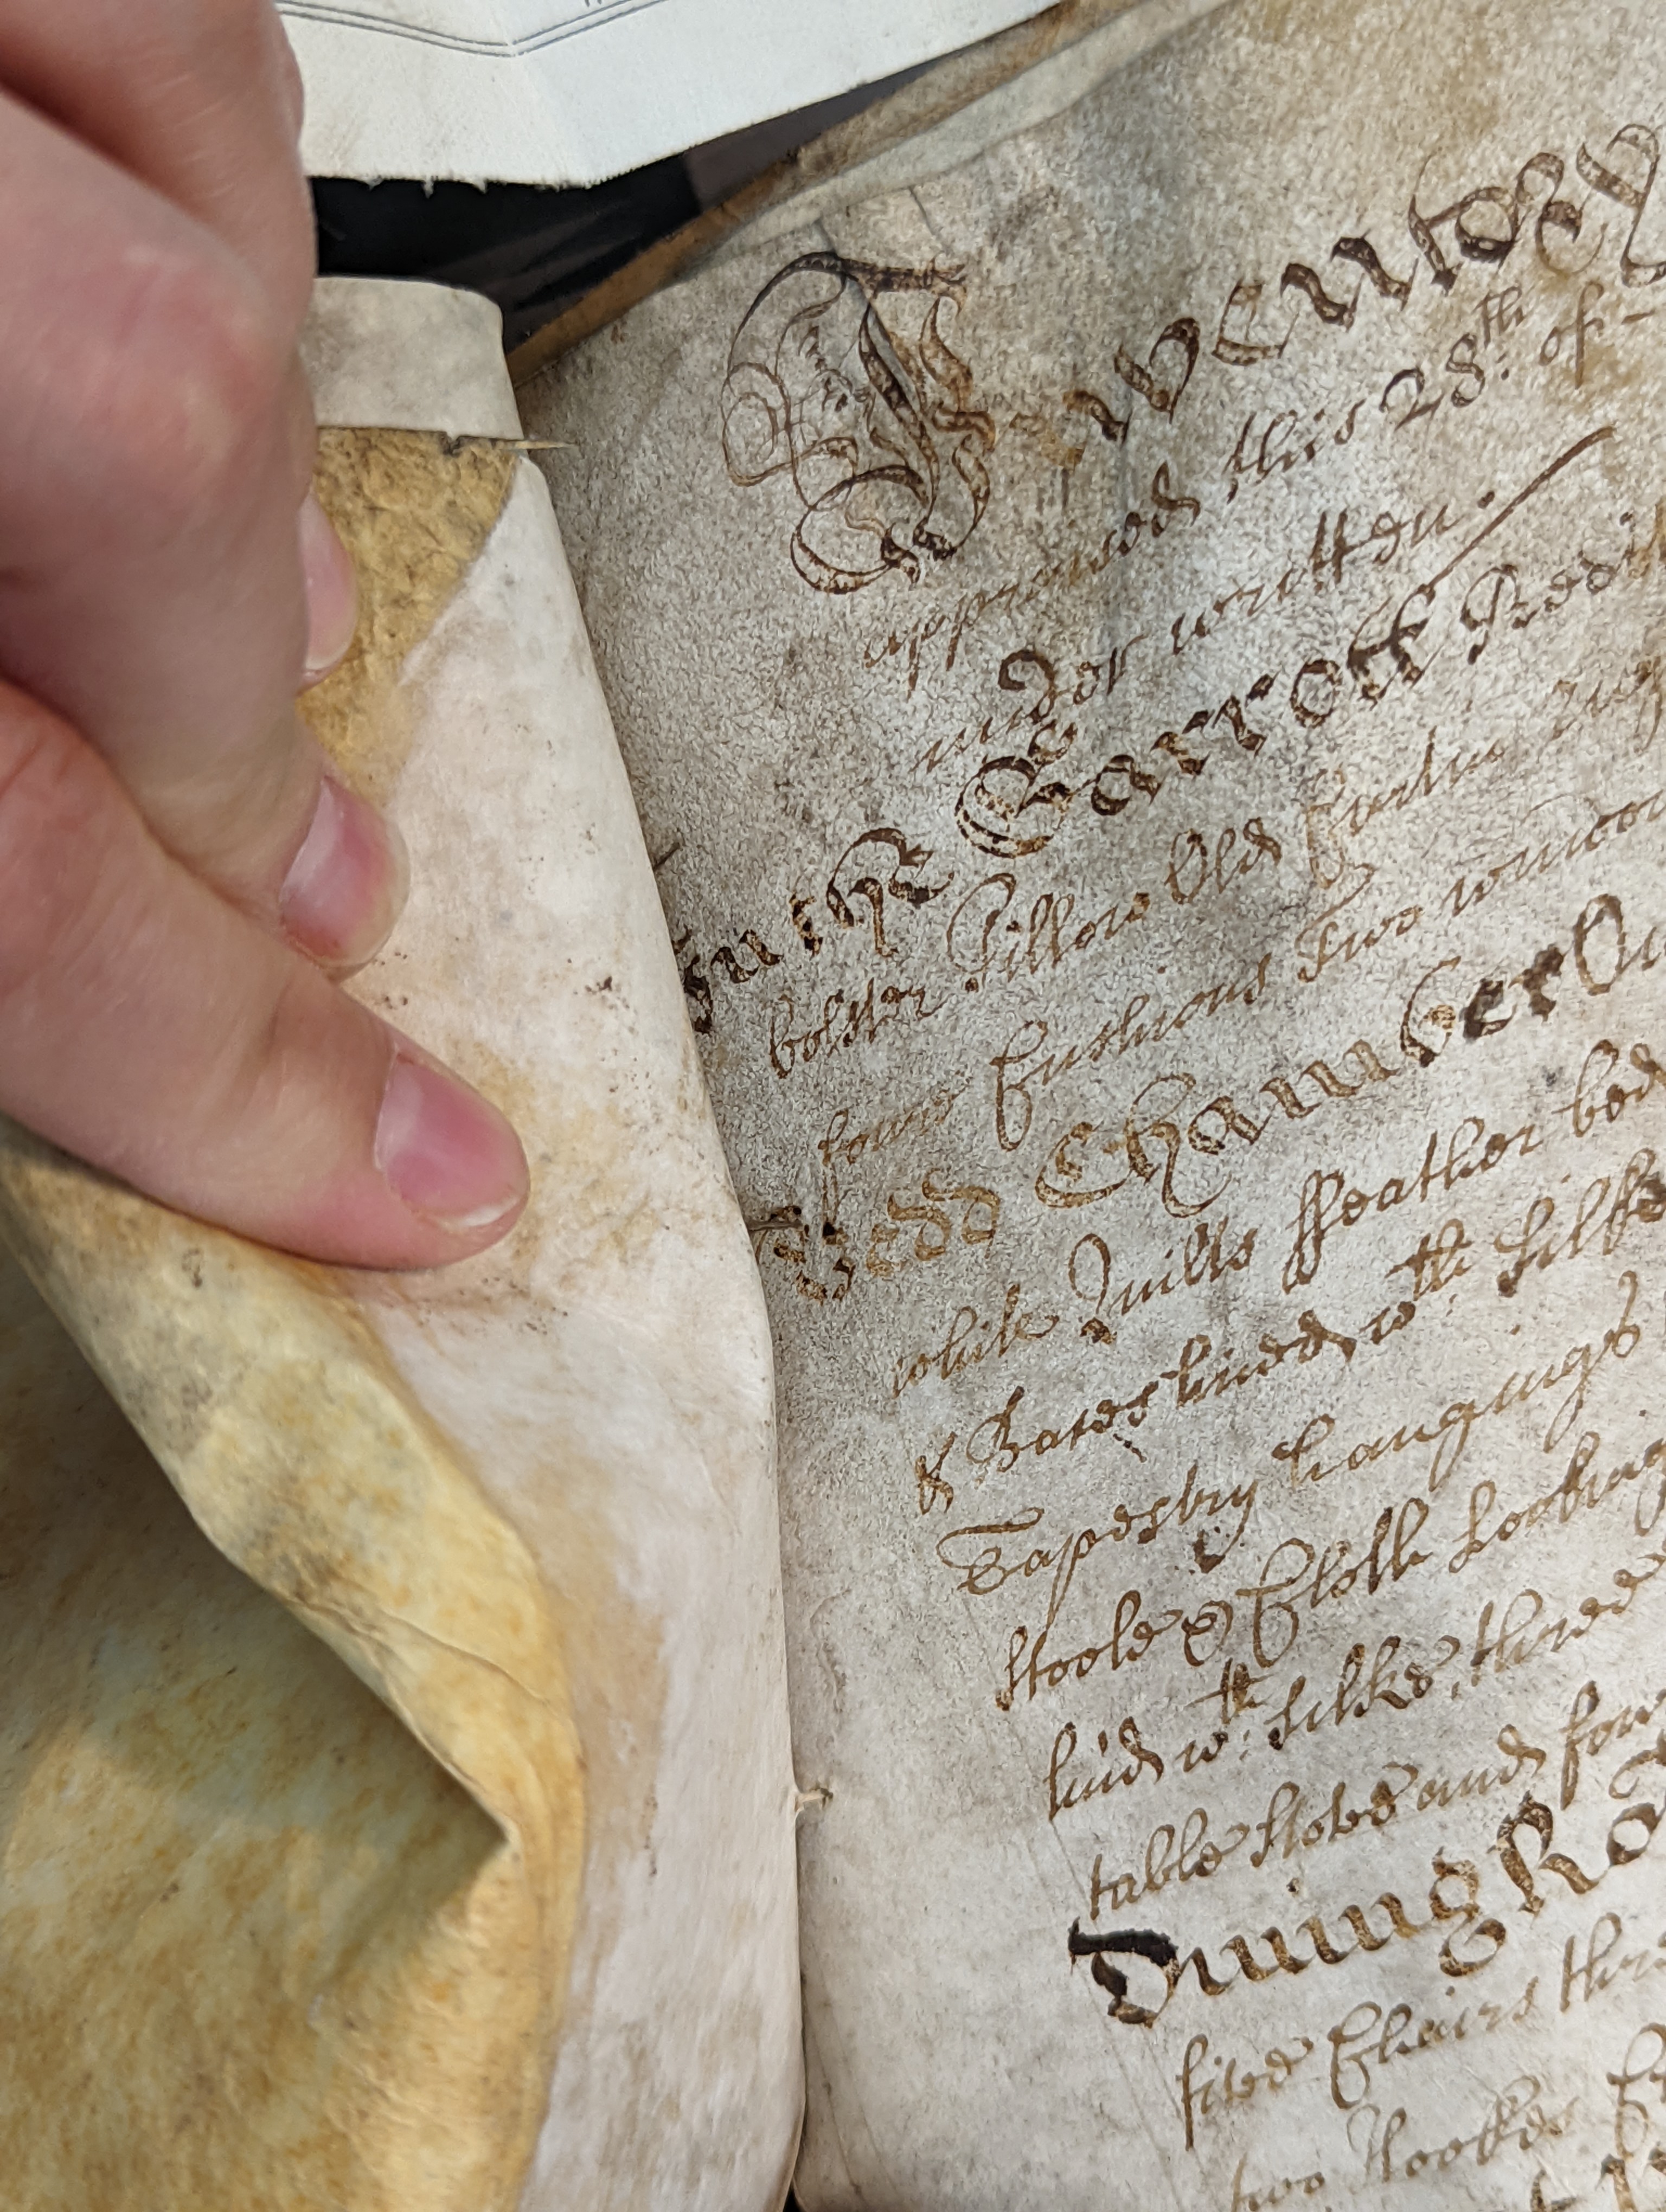 Inventory
appraised this 28th: of -
under written.
In the Garrett Bedd
bolster Pillow Old Curtins
fowre Cushions Two window
Bedd Chamber On
white Quilts ffeather bed
& Bases lined wth: silke
Tapestry hangings
stoole & Close Looking
lined wth: silke, three
table stove and fow
Dining Ro
five Chairs thre
two Hookes